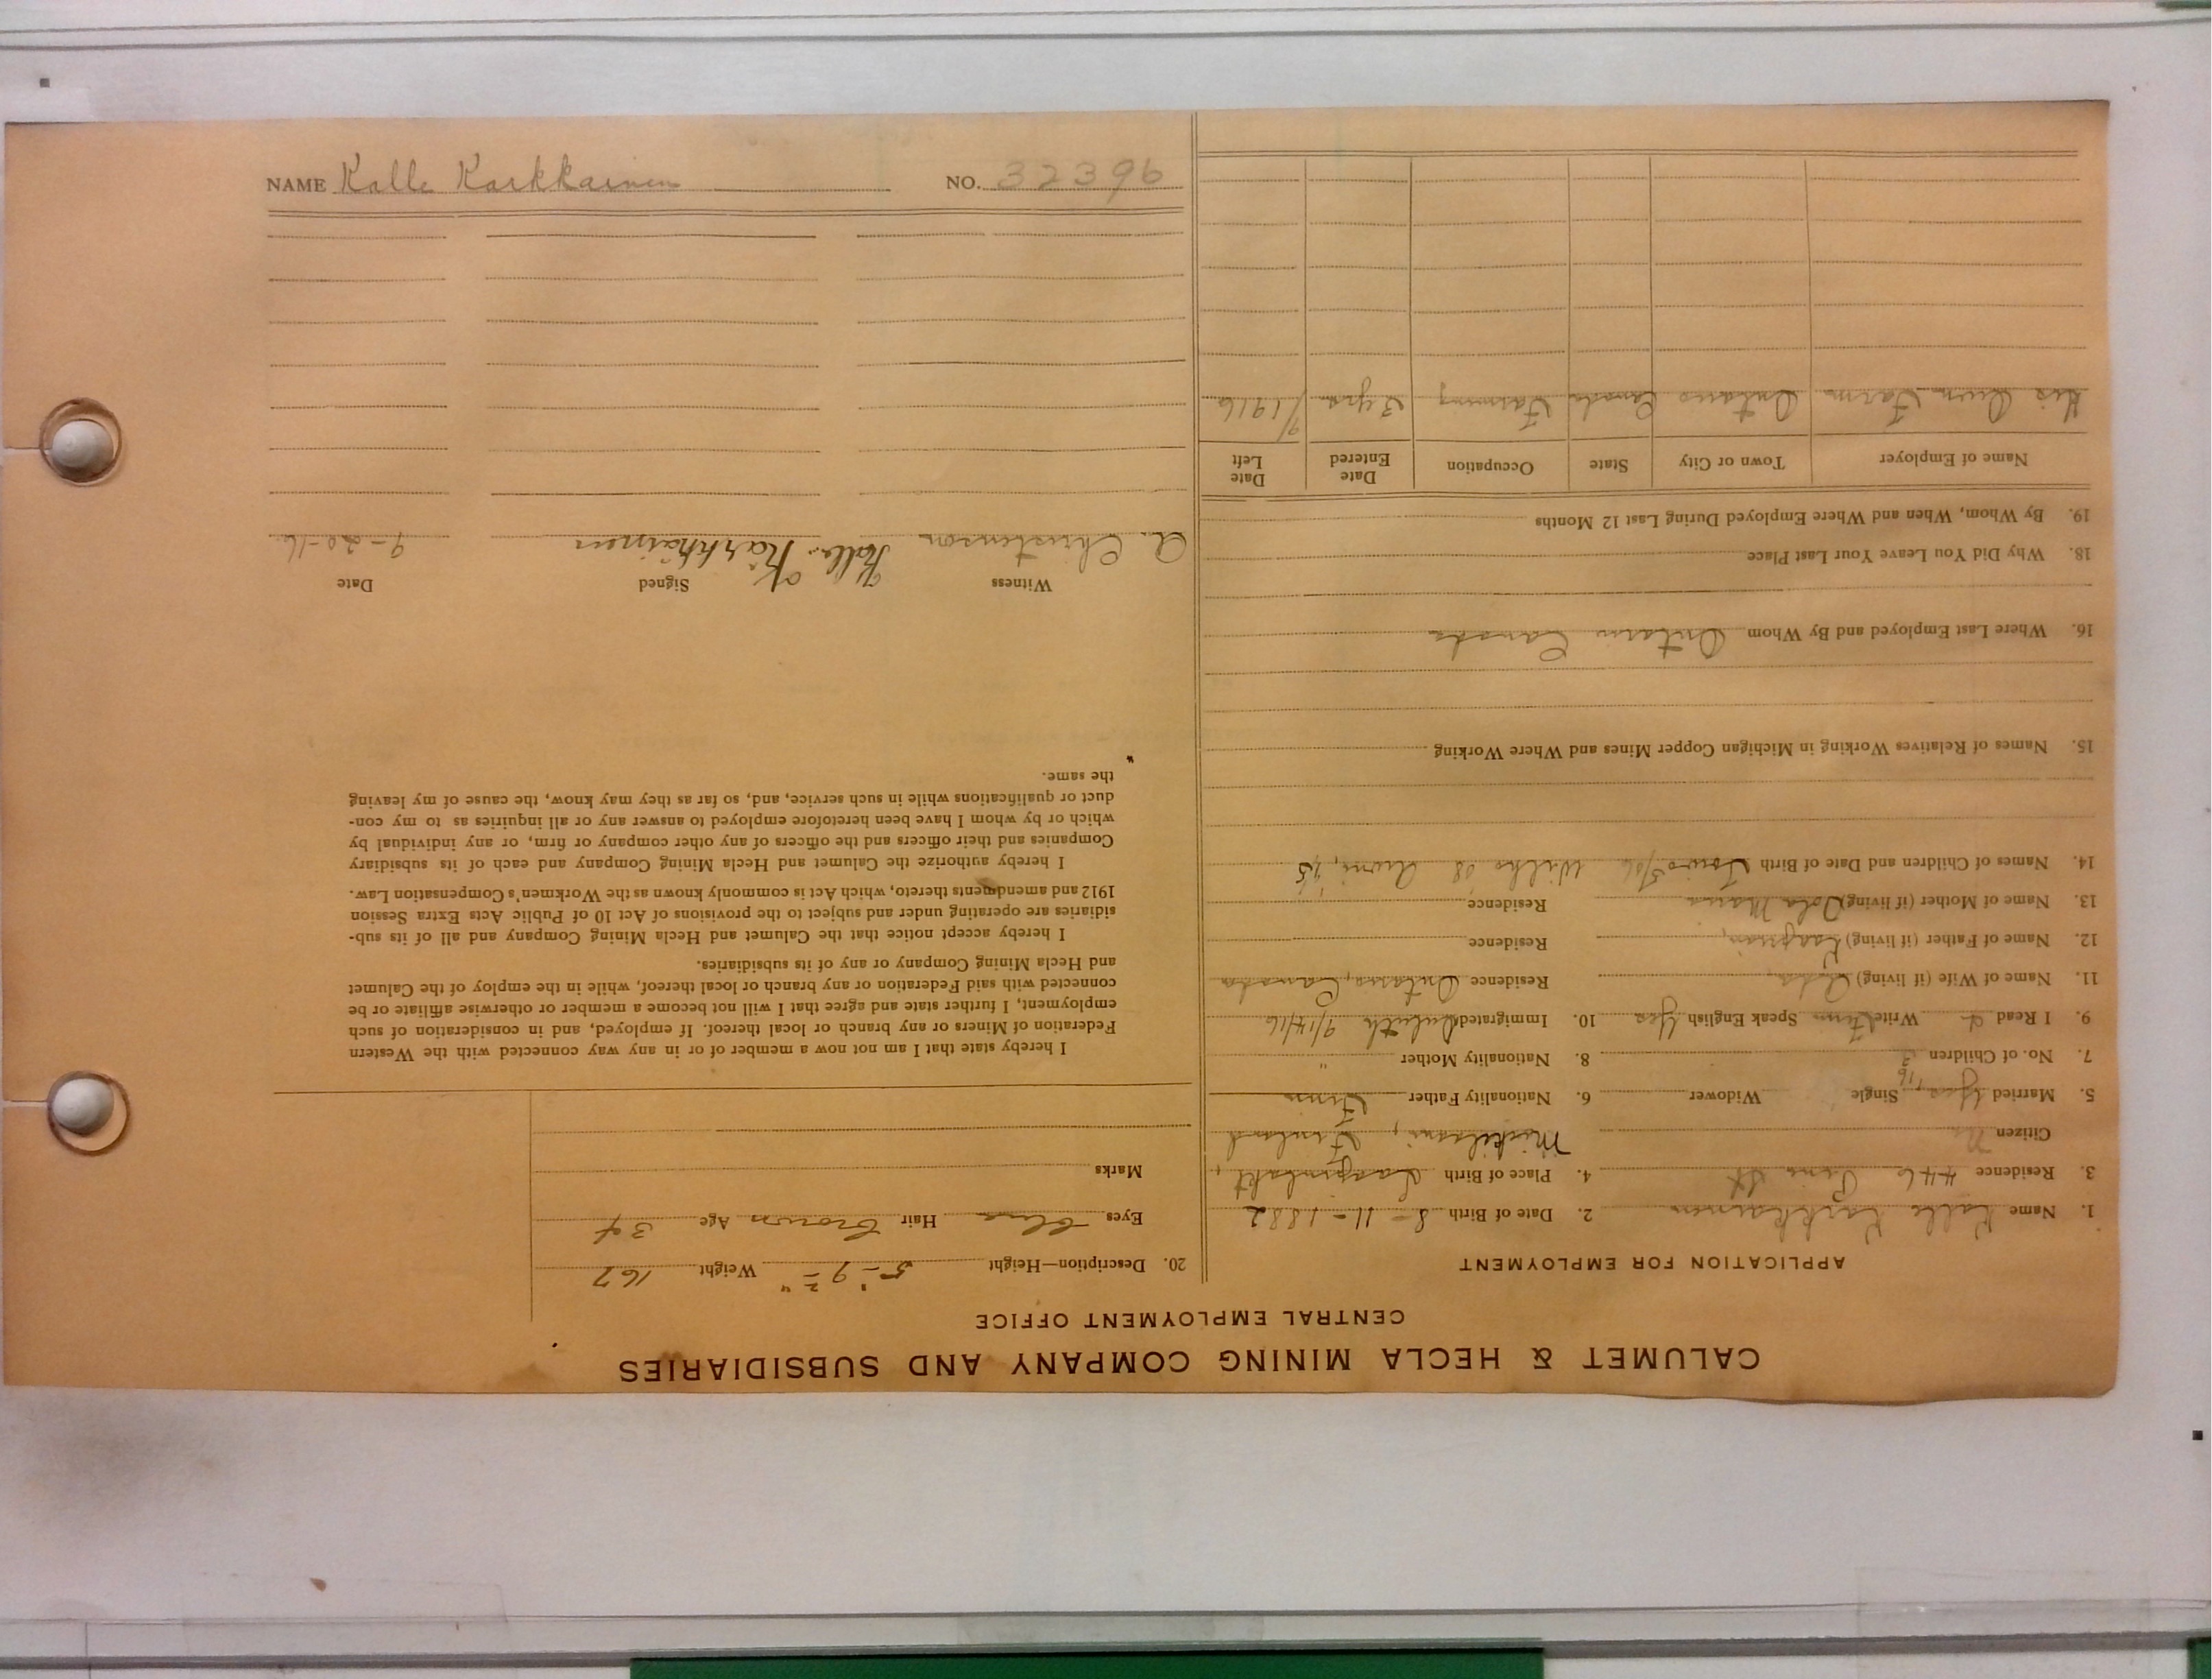 NAME Kalle Karkkainen NO. 32396
CALUMET & HECLA MINING COMPANY AND SUBSIDIARIES
CENTRAL EMPLOYMENT OFFICE
APPLICATION FOR EMPLOYMENT
1. Name Kalle Karkkainen 2. Date of Birth 8-11-1882
3. Residence 446 Pine St 4. Place of Birth
Citizen No Finland
5. Married Yes Single Widower 6. Nationality Father Finn
7. No. of Children 3 8. Nationality Mother "
9. I Read & Write Finn Speak English Yes 10. Immigrated Duluth 9/14/16
11. Name of Wife (if living) Residence Ontario, Canada
12. Name of Father (if living) Residence
13. Name of Mother (if living) Maria Residence
14. Names of Children and Date of Birth
15. Names of Relatives Working in Michigan Copper Mines and Where Working
16. Where Last Employed and By Whom Ontario Canada
18. Why Did You Leave Your Last Place
19. By Whom, When and Where Employed During Last 12 Months
Name of Employer Town or City State Occupation Date Entered Date Left
His Own Farm Ontario Canada Farming 3 yrs 9/1916
20. Description—Height 5'-9 1/2" Weight 167
Eyes blue Hair Brown Age 34
Marks
I hereby state that I am not now a member of or in any way connected with the Western
Federation of Miners or any branch or local thereof. If employed, and in consideration of such
employment, I further state and agree that I will not become a member or otherwise affiliate or be
connected with said Federation or any branch or local thereof, while in the employ of the Calumet
and Hecla Mining Company or any of its subsidiaries.
I hereby accept notice that the Calumet and Hecla Mining Company and all of its sub-
sidiaries are operating under and subject to the provisions of Act 10 of Public Acts Extra Session
1912 and amendments thereto, which Act is commonly known as the Workmen's Compensation Law.
I hereby authorize the Calumet and Hecla Mining Company and each of its subsidiary
Companies and their officers and the officers of any other company or firm, or any individual by
which or by whom I have been heretofore employed to answer any or all inquiries as to my con-
duct or qualifications while in such service, and, so far as they may know, the cause of my leaving
the same.
Witness Signed Date
A. Christenson Kalle Karkkainen 9-20-16